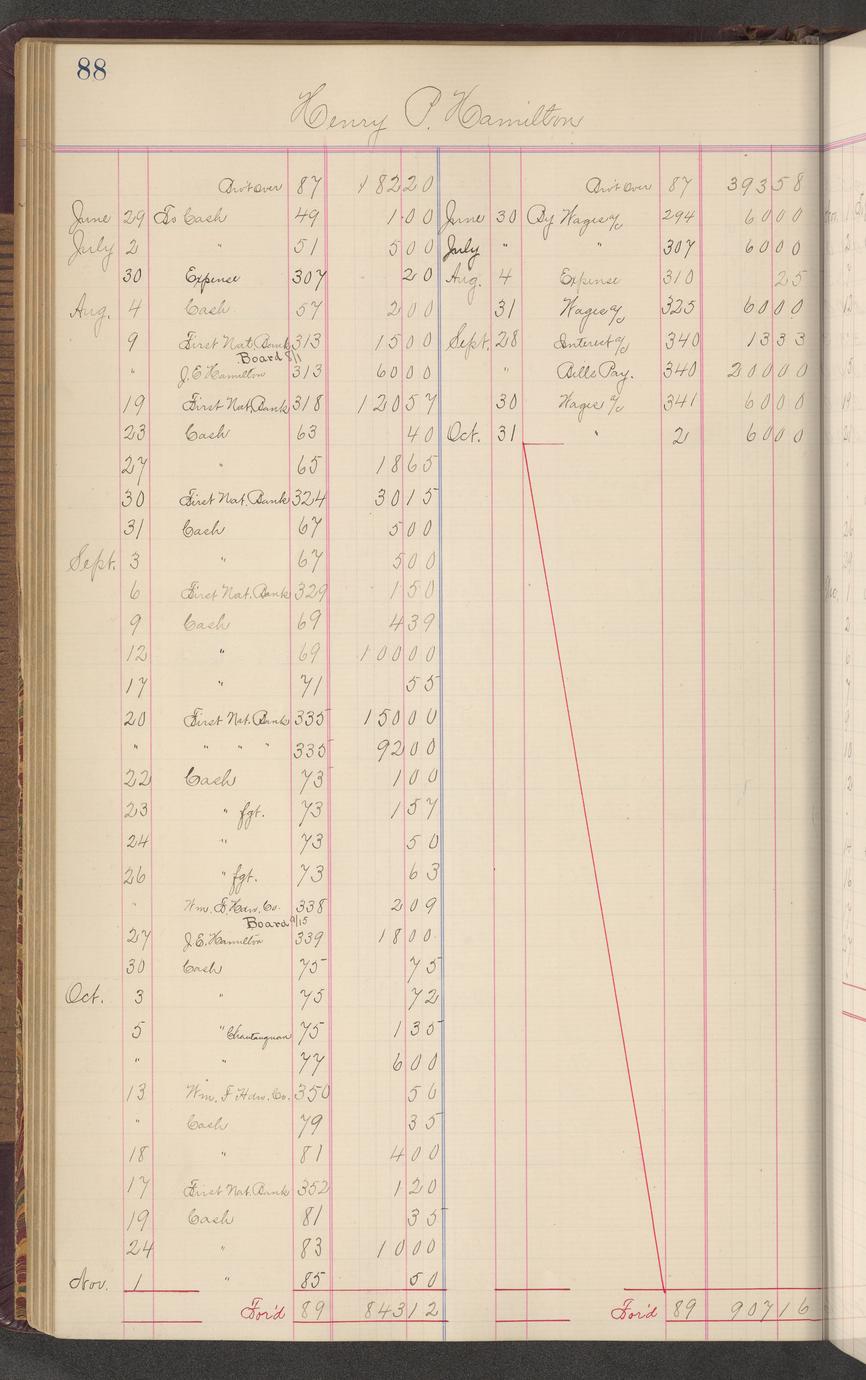 88
Henry P. Hamilton
Bro't over 87 182 20
June 29 To Cash 49 1 00
July 2 " 51 5 00
30 Expense 307 20
Aug. 4 Cash 57 2 00
9 First Nat. Bank 313 15 00
Board 8/1
" J. E. Hamilton 313 60 00
19 First Nat. Bank 318 120 57
23 Cash 63 40
27 " 65 18 65
30 First Nat. Bank 324 30 15
31 Cash 67 5 00
Sept. 3 " 67 5 00
6 First Nat. Bank 329 1 50
9 Cash 69 4 39
12 " 69 100 00
17 " 71 55
20 First Nat. Bank 335 150 00
" " " " 335 92 00
22 Cash 73 1 00
23 " fgt. 73 1 57
24 " 73 50
26 " fgt. 73 63
" Wm. F. Haw. Co. 338 2 09
Board 9/15
27 J. E. Hamilton 339 18 00
30 Cash 75 75
Oct. 3 " 75 72
5 " Chautauquan 75 1 35
" " 77 6 00
13 Wm. F Haw. Co. 350 50
" Cash 79 35
18 " 81 4 00
17 First Nat. Bank 352 1 20
19 Cash 81 35
24 " 83 10 00
Nov. 1 " 85 50
For'd 89 843 12
Bro't over 87 393 58
June 30 By Wages a/c 294 60 00
July " " 307 60 00
Aug. 4 Expense 310 25
31 Wages a/c 325 60 00
Sept. 28 Interest a/c 340 13 33
" Bills Pay. 340 200 00
30 Wages a/c 341 60 00
Oct. 31 " 2 60 00
For'd 89 907 16